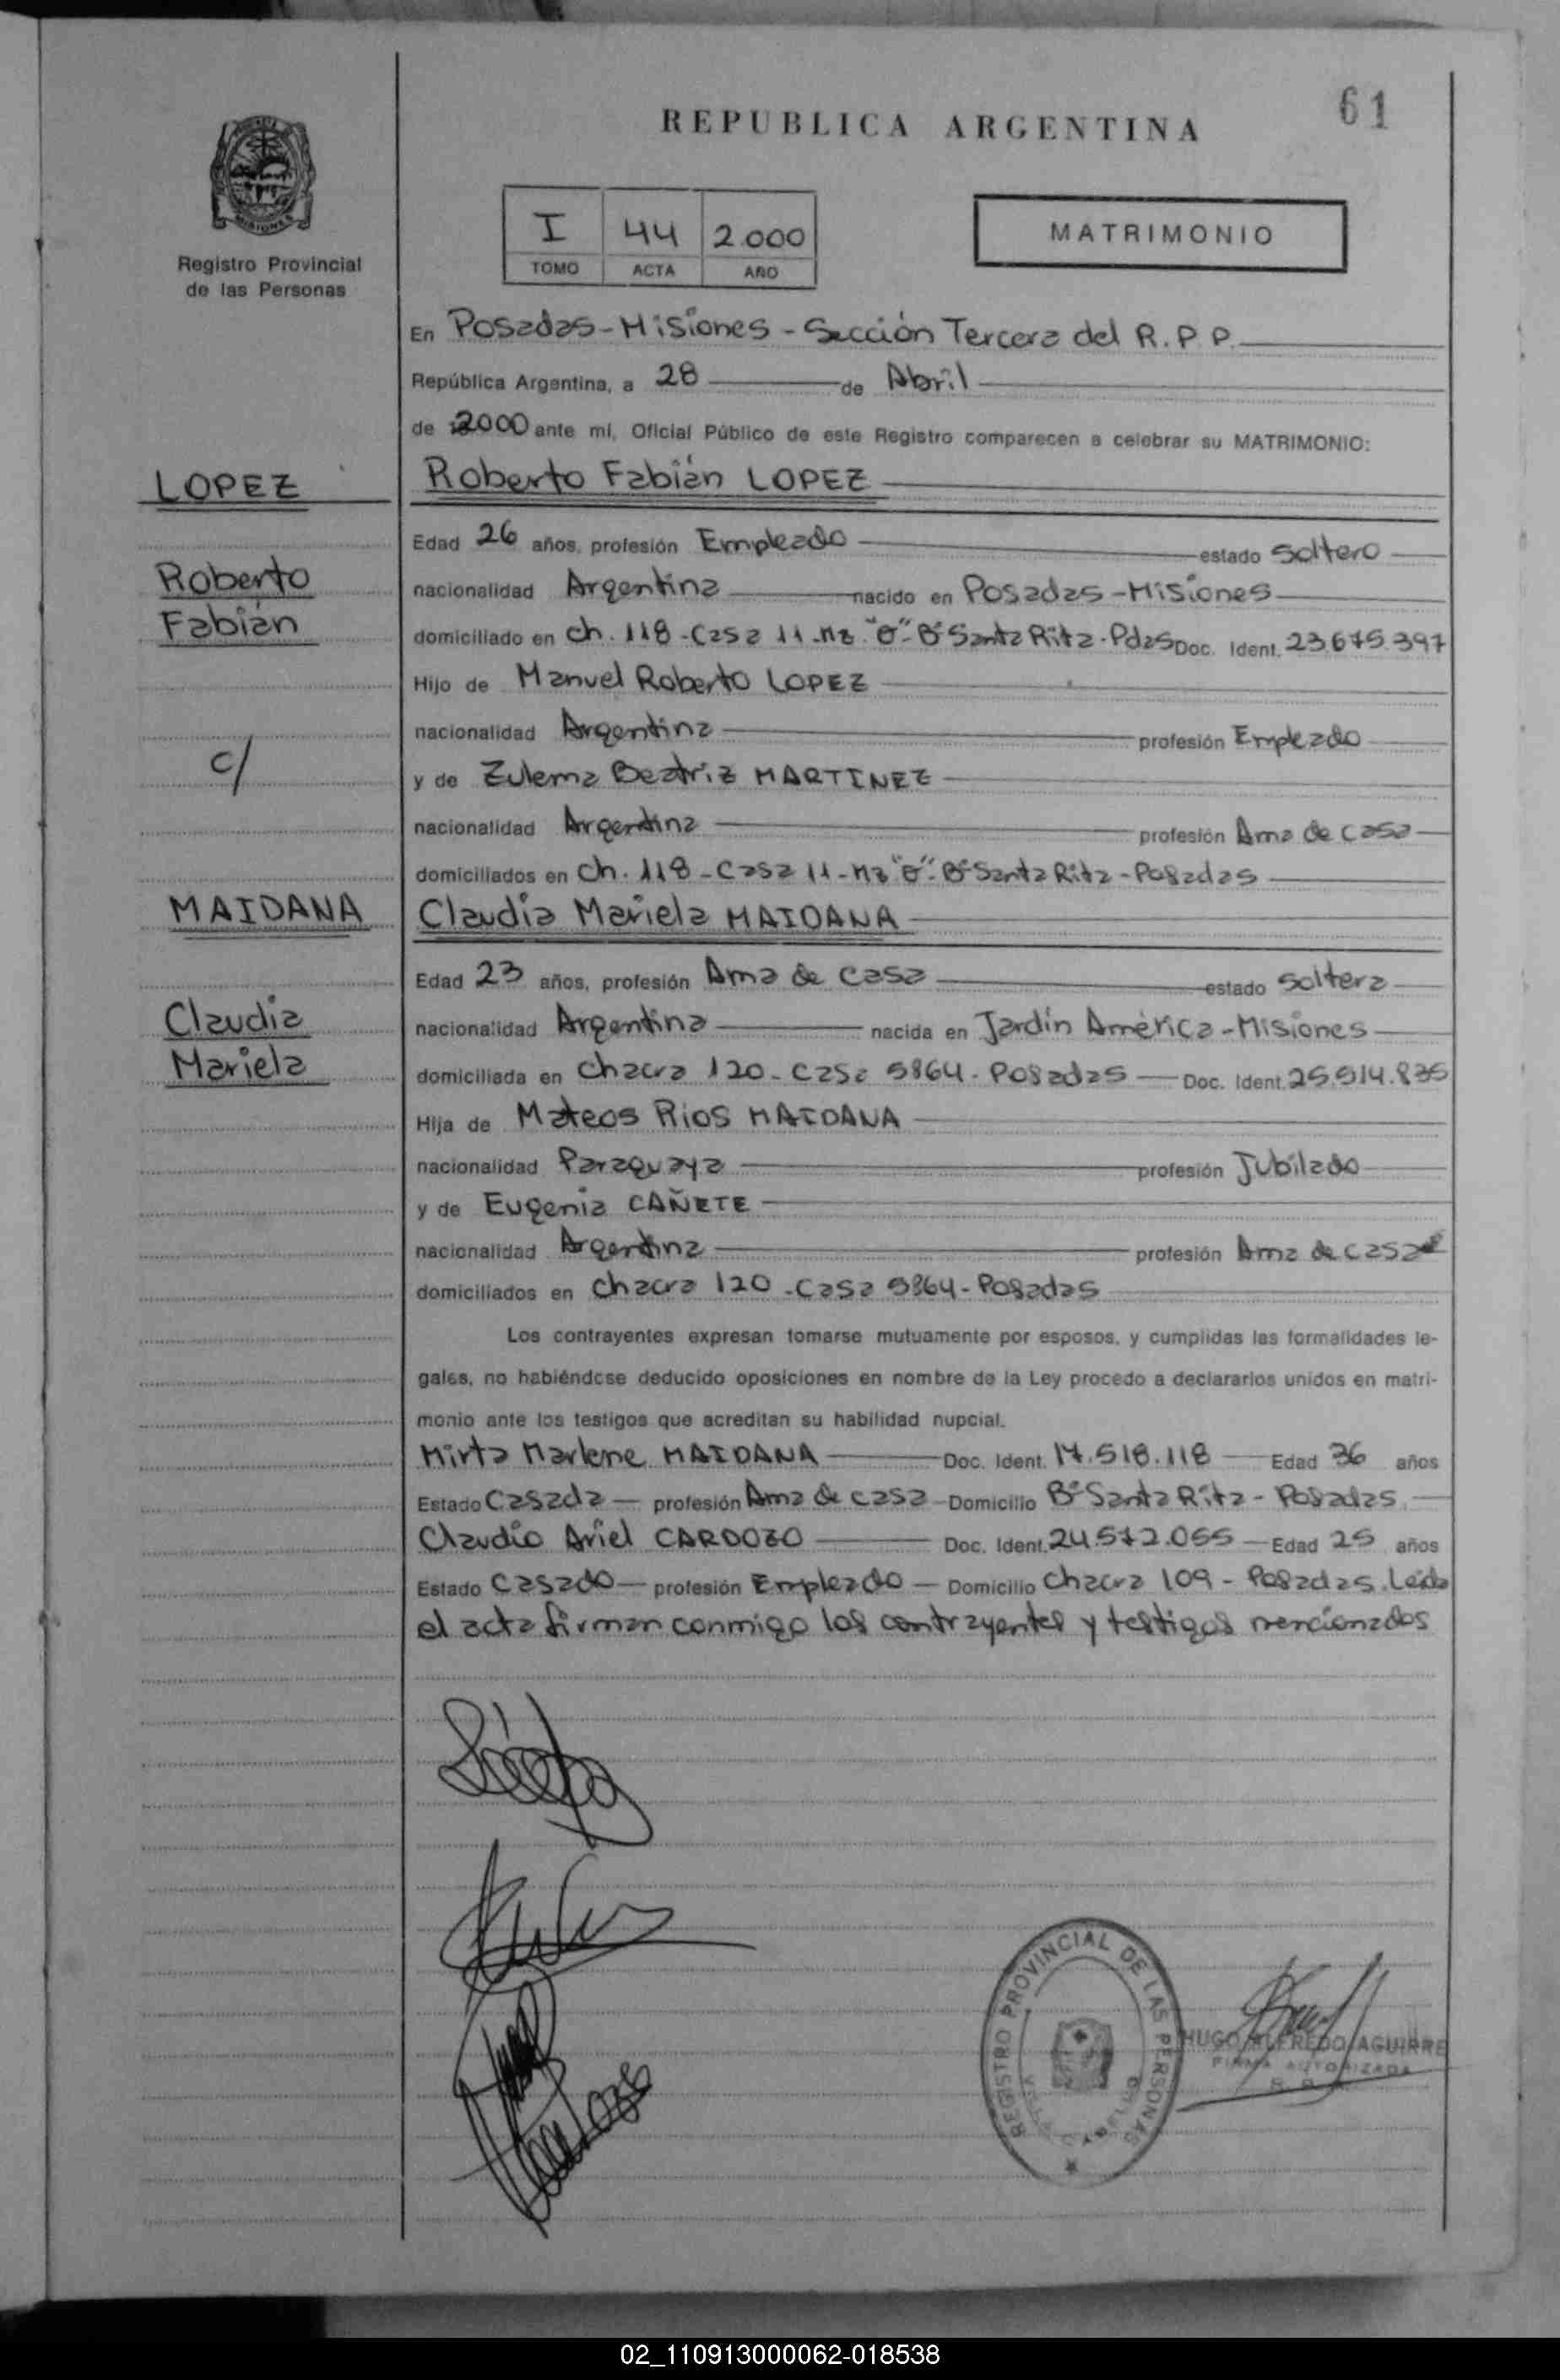 61
REPUBLICA ARGENTINA
I 44 2.000
TOMO ACTA AÑO
MATRIMONIO
Registro Provincial
de las Personas
En Posadas-Misiones - Sección Tercera del R.P.P.
República Argentina, a 28 de Abril
de 2000 ante mí, Oficial Público de este Registro comparecen a celebrar su MATRIMONIO:
LOPEZ
Roberto
Fabián
c/
MAIDANA
Claudia
Mariela
Roberto Fabián LOPEZ
Edad 26 años, profesión Empleado estado Soltero
nacionalidad Argentina nacido en Posadas-Misiones
domiciliado en Ch. 118-Casa 11-Mz. Bº Santa Rita-Pdas Doc. Ident. 23.675.397
Hijo de Manuel Roberto LOPEZ
nacionalidad Argentina profesión Empleado
y de Zulema Beatriz MARTINEZ
nacionalidad Argentina profesión Ama de casa
domiciliados en Ch. 118-Casa 11-Mz Bº Santa Rita-Posadas
Claudia Mariela MAIDANA
Edad 23 años, profesión Ama de casa estado Soltera
nacionalidad Argentina nacida en Jardín América-Misiones
domiciliada en Chacra 120-Casa 5864-Posadas Doc. Ident. 25.914.835
Hija de Mateos Rios MAIDANA
nacionalidad Paraguaya profesión Jubilado
y de Eugenia CAÑETE
nacionalidad Argentina profesión Ama de casa
domiciliados en Chacra 120-Casa 5864-Posadas
Los contrayentes expresan tomarse mutuamente por esposos, y cumplidas las formalidades le-
gales, no habiéndose deducido oposiciones en nombre de la Ley procedo a declararlos unidos en matri-
monio ante los testigos que acreditan su habilidad nupcial.
Mirta Marlene MAIDANA Doc. Ident. 17.518.118 Edad 36 años
Estado Casada profesión Ama de casa Domicilio Bº Santa Rita-Posadas
Claudio Ariel CARDOZO Doc. Ident. 24.572.055 Edad 25 años
Estado Casado profesión Empleado Domicilio Chacra 109-Posadas. Leída
el acta firman conmigo los contrayentes y testigos mencionados
REGISTRO PROVINCIAL DE LAS PERSONAS
HUGO ALFREDO AGUIRRE
FIRMA AUTORIZADA
02_110913000062-018538